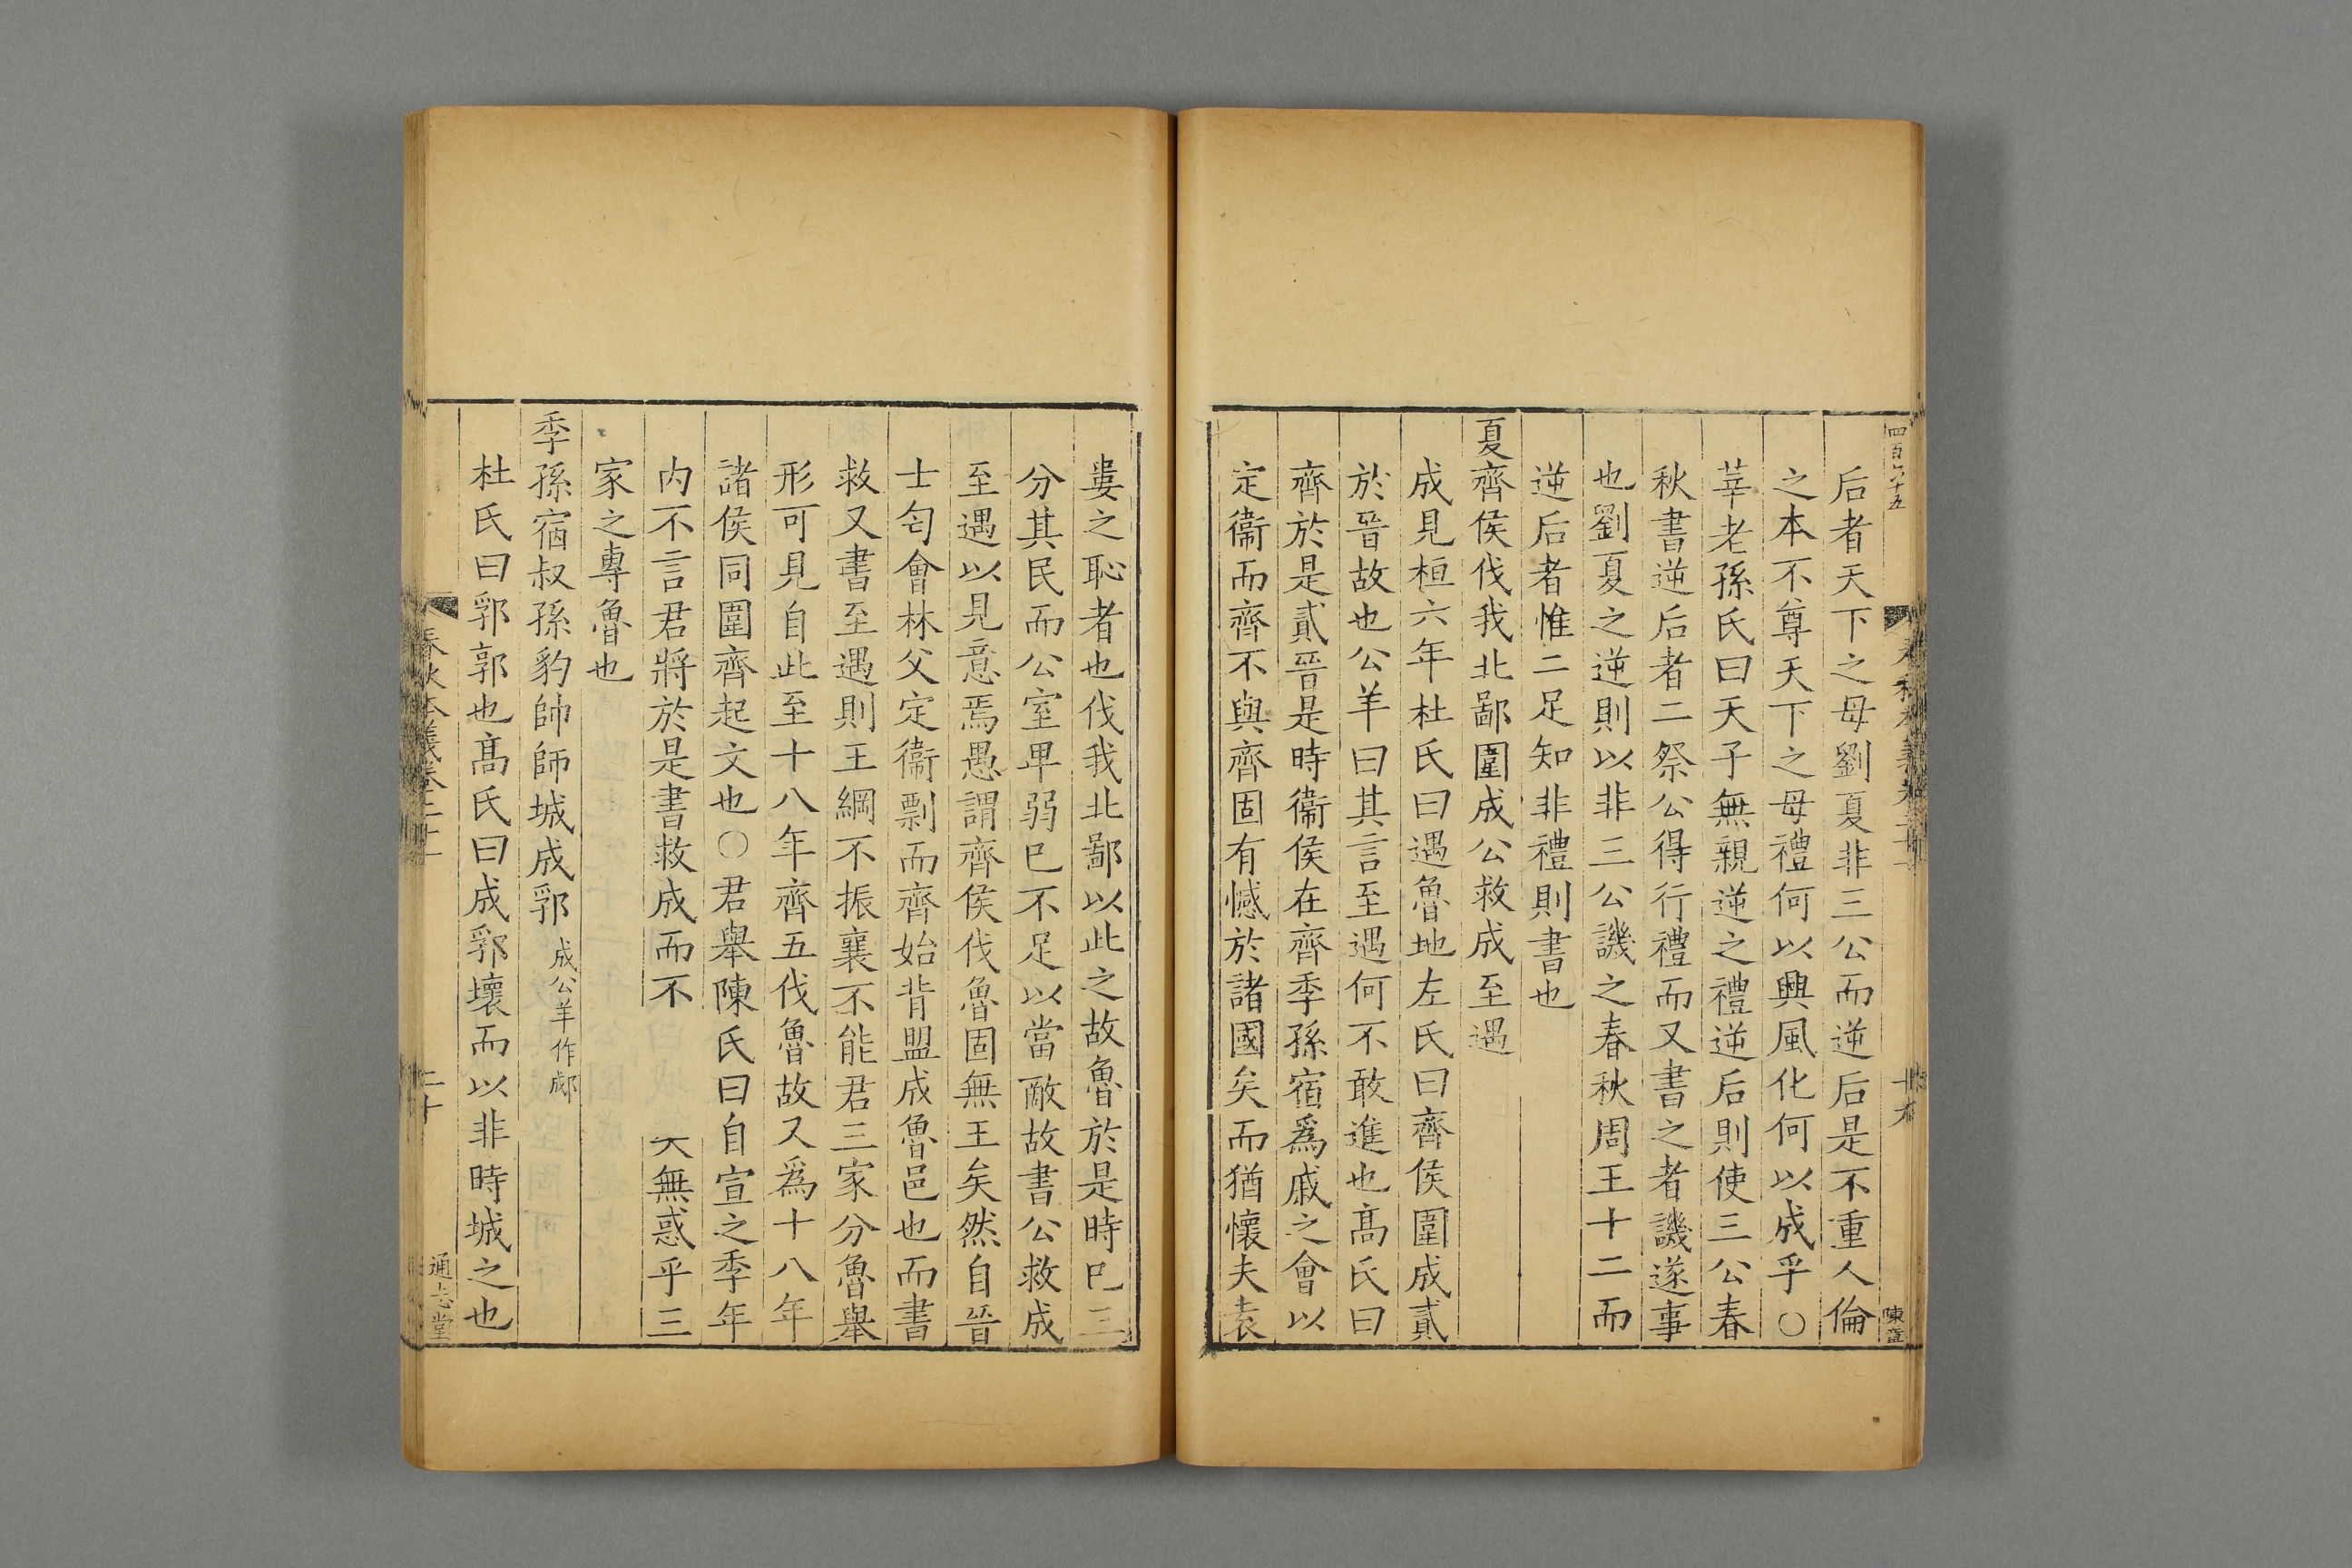 四百六十五
陳章
后者天下之母劉夏非三公而逆后是不重人倫
之本不尊天下之母禮何以興風化何以成乎○
莘老孫氏曰天子無親逆之禮逆后則使三公春
秋書逆后者二祭公得行禮而又書之者譏遂事
也劉夏之逆則以非三公譏之春秋周王十二而
逆后者惟二足知非禮則書也
夏齊侯伐我北鄙圍成公救成至遇
成見桓六年杜氏曰遇魯地左氏曰齊侯圍成貳
於晉故也公羊曰其言至遇何不敢進也髙氏曰
齊於是貳晉是時衞侯在齊季孫宿爲戚之會以
定衞而齊不與齊固有憾於諸國矣而猶懷夫袁
婁之恥者也伐我北鄙以此之故魯於是時巳三
分其民而公室卑弱巳不足以當敵故書公救成
至遇以見意焉愚謂齊侯伐魯固無王矣然自晉
士匄會林父定衞剽而齊始背盟成魯邑也而書
救又書至遇則王綱不振襄不能君三家分魯舉
形可見自此至十八年齊五伐魯故又爲十八年
諸侯同圍齊起文也○君舉陳氏曰自宣之季年
内不言君將於是書救成而不 無惑乎三
家之專魯也
季孫宿叔孫豹帥師城成郛 成公羊作郕
杜氏曰郛郭也髙氏曰成郛壞而以非時城之也
春秋本義卷二十
二十
通志堂